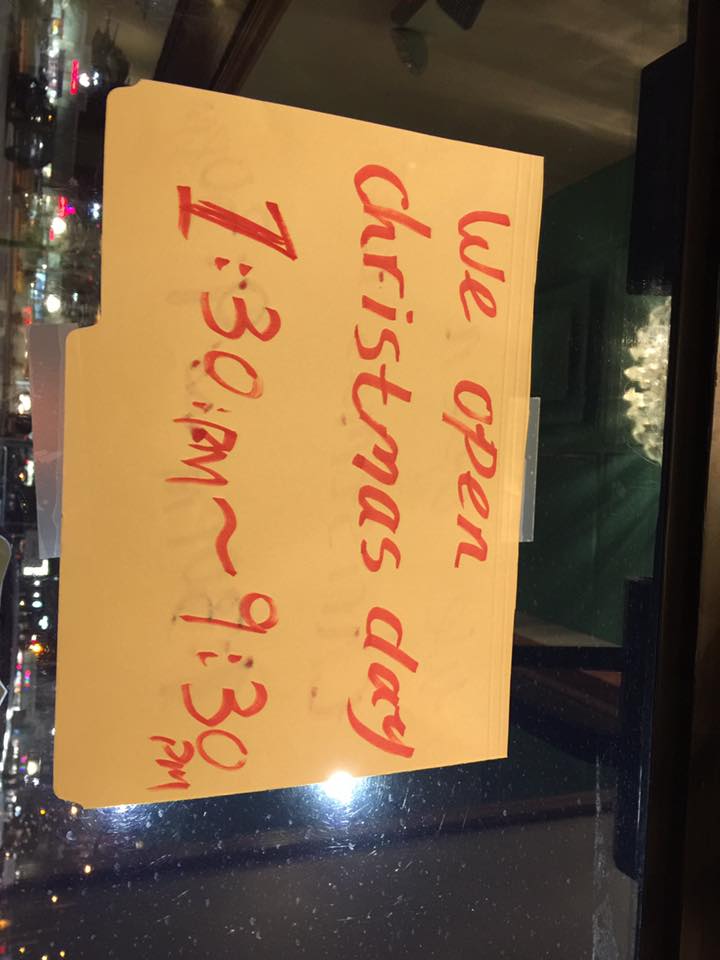 We open
christmas day
1:30:PM~9:30
PM